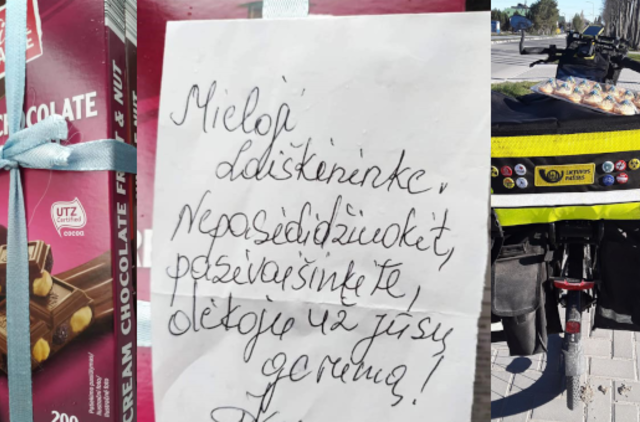 CHOCOLATE
UTZ
Certified
cocoa
CREAM CHOCOLATE FRUIT & NUT
200
Mieloji
Laiškininke.
Nepasididžiuokit,
pasivaišinkite,
dėkoju už jūsų
gerumą!
LIETUVOS
PAŠTAS